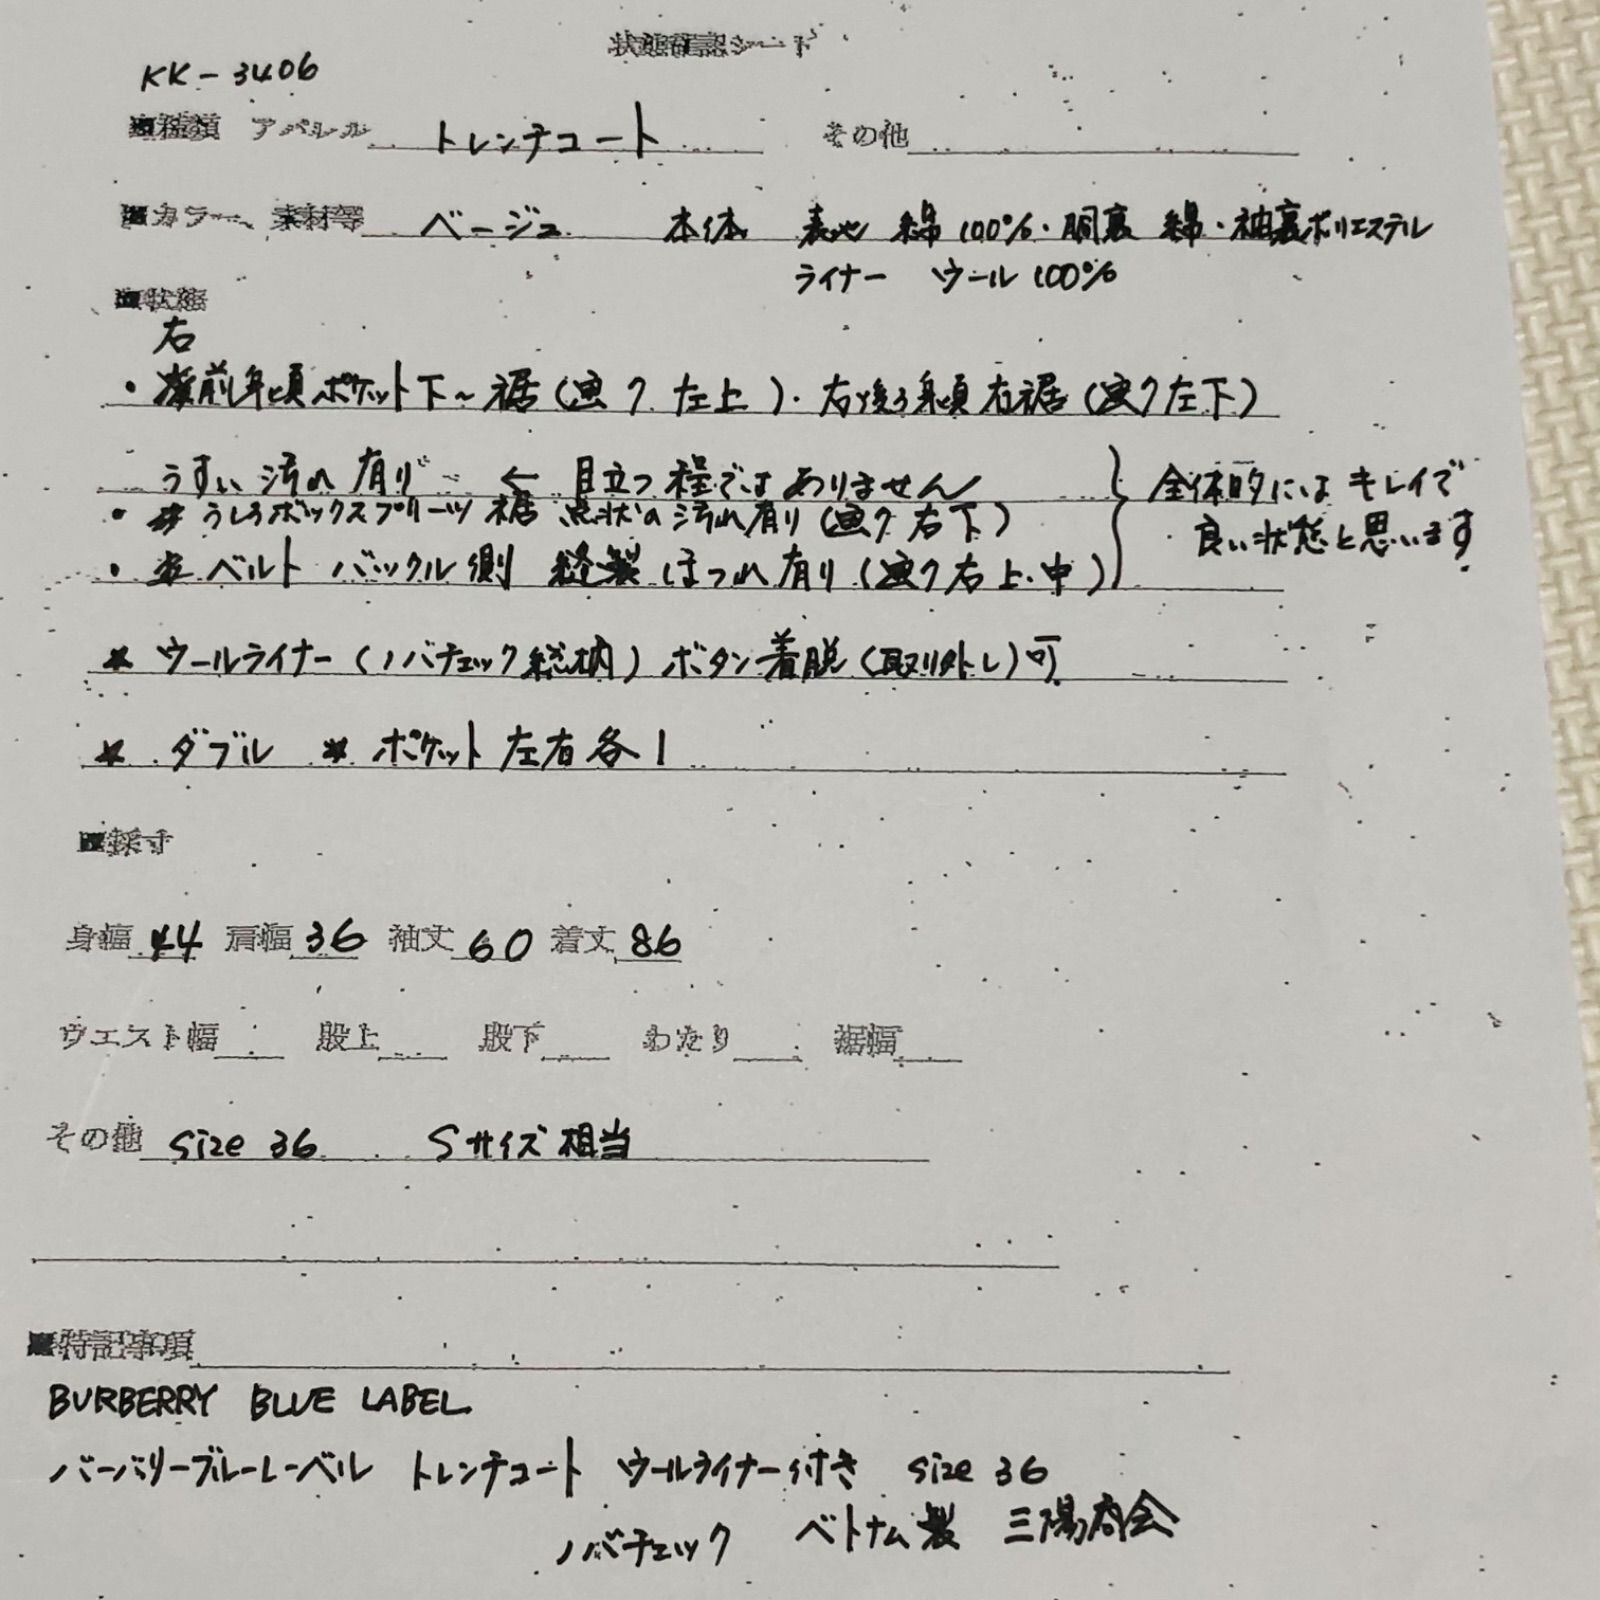 状態確認シート
KK-3406
■種類 アパレル トレンチコート その他
■カラー、素材等 ベージュ 本体 表地 綿100%・胴裏 綿・袖裏ポリエステル
ライナー ウール100%
■状態
右
・前身頃ポケット下〜裾(画ク左上)・右後ろ身頃右裾(画ク左下)
うすい汚れ有り ← 目立つ程ではありません
・うしろボックスプリーツ裾 点状の汚れ有り(画ク右下)
・ベルト バックル側 縫製ほつれ有り(画ク右上・中)
全体的にはキレイで
良い状態と思います
* ウールライナー(ノバチェック総柄)ボタン着脱(取り外し)可
* ダブル * ポケット左右各1
■採寸
身幅 44 肩幅 36 袖丈 60 着丈 86
ウエスト幅 股上 股下 わたり 裾幅
その他 size 36 Sサイズ相当
■特記事項
BURBERRY BLUE LABEL
バーバリーブルーレーベル トレンチコート ウールライナー付き size 36
ノバチェック ベトナム製 三陽商会